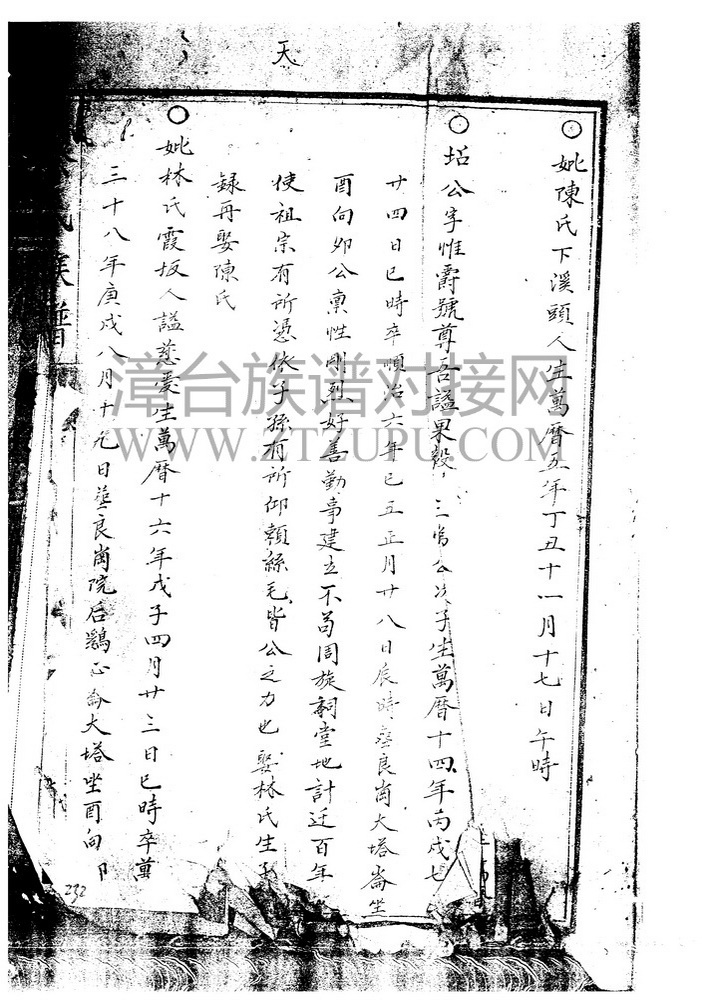 天
○妣陳氏下溪頭人生萬曆五年丁丑十一月十七日午時
○坫公字惟爵號尊吾謚果毅三官公次子生萬曆十四年丙戌七
廿四日巳時卒順治六年己五正月廿八日辰時葬良崗大塔崙坐
酉向夘公稟性剛烈好善勤事建立不苟周旋祠堂地計迁百年
使祖宗有所憑依子孫有所仰賴絲毛皆公之力也娶林氏生子
録再娶陳氏
○妣林氏霞坂人謚慈爱生萬曆十六年戊子四月廿三日巳時卒萬
三十八年庚戌八月十九日葬良崗院后鷄心崙大塔坐酉向卩
族譜
232
漳台族谱对接网
WWW.ZTZUPU.COM